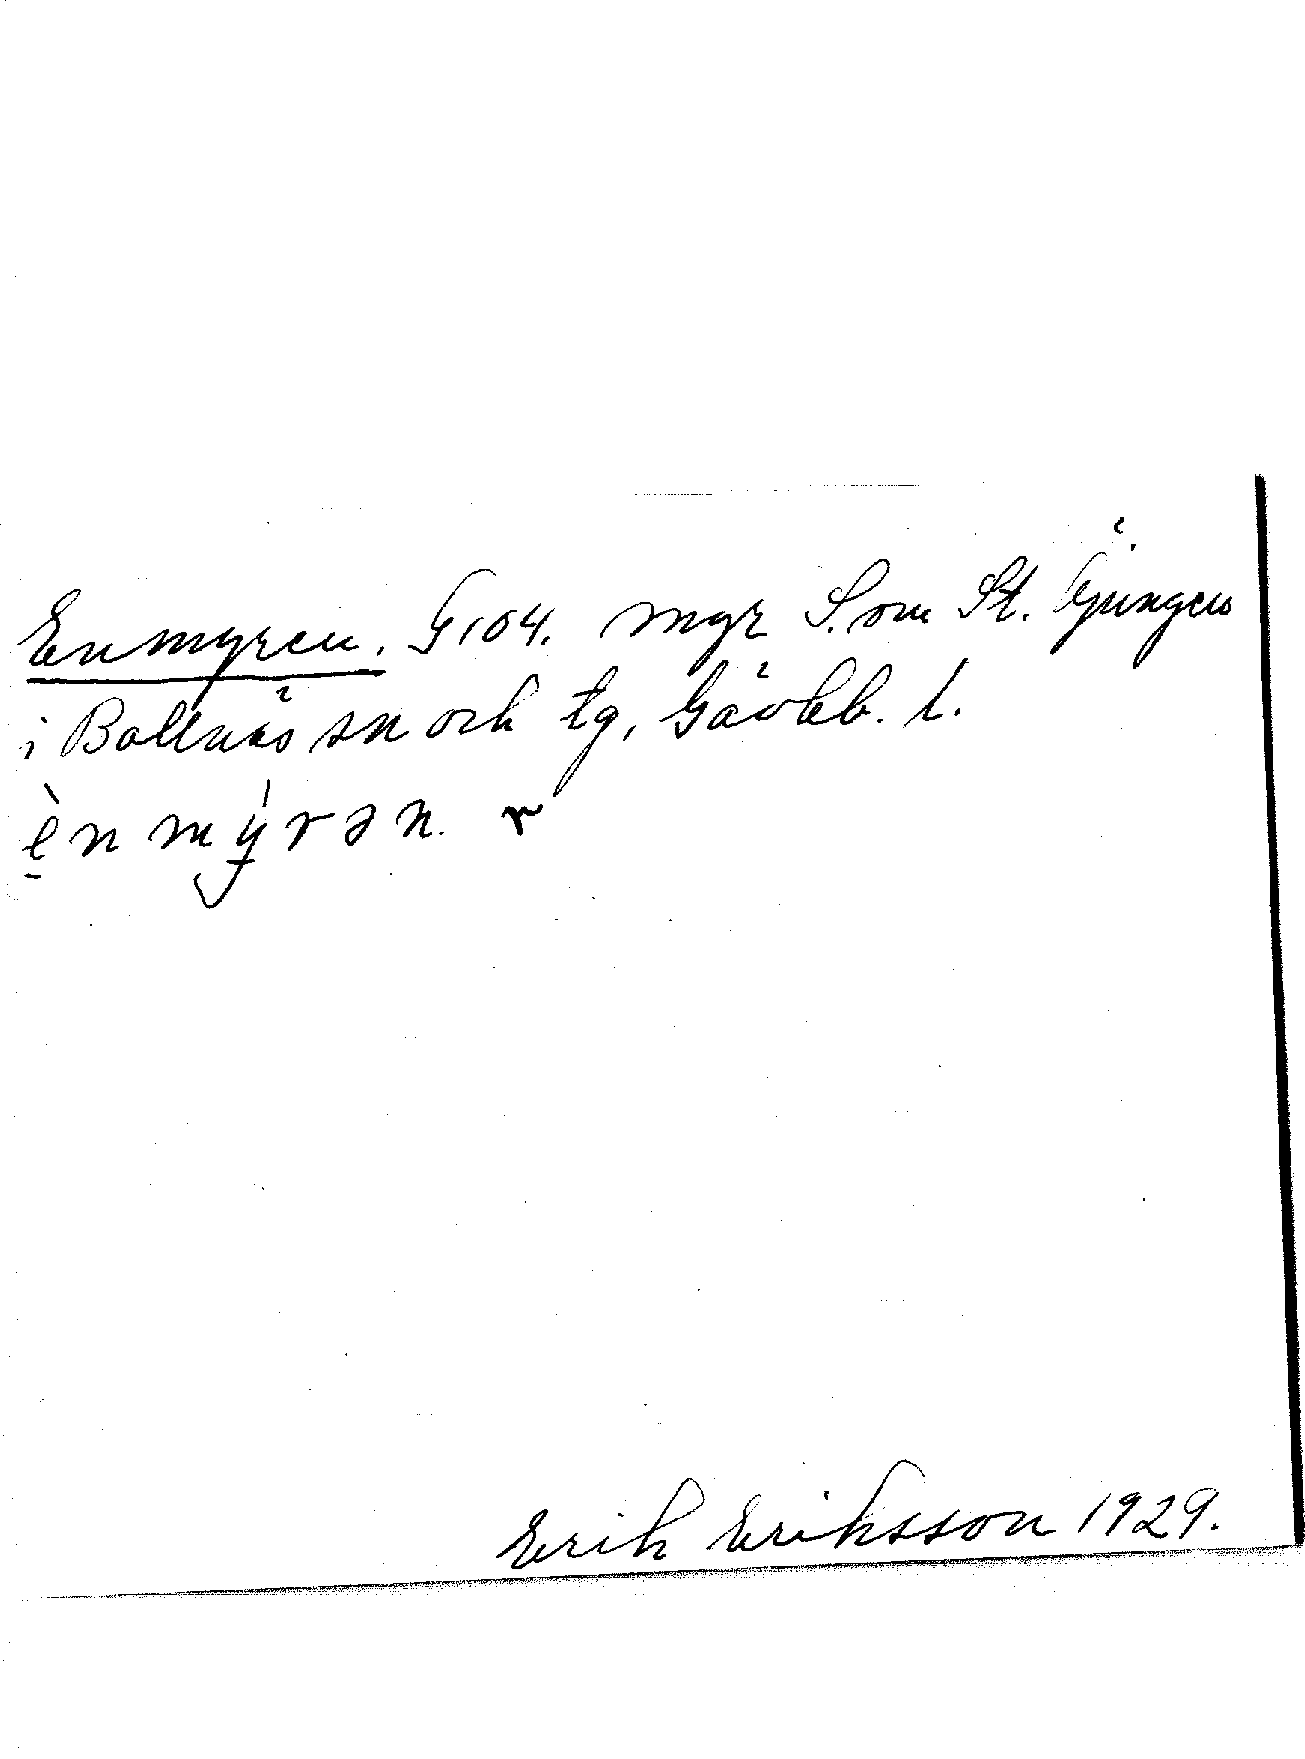 Enmyren. G104. myr S. om St. Öjungen
i Bollnäs sn och tg, Gävleb. l.
ènmýrən. r
Erik Eriksson 1929.